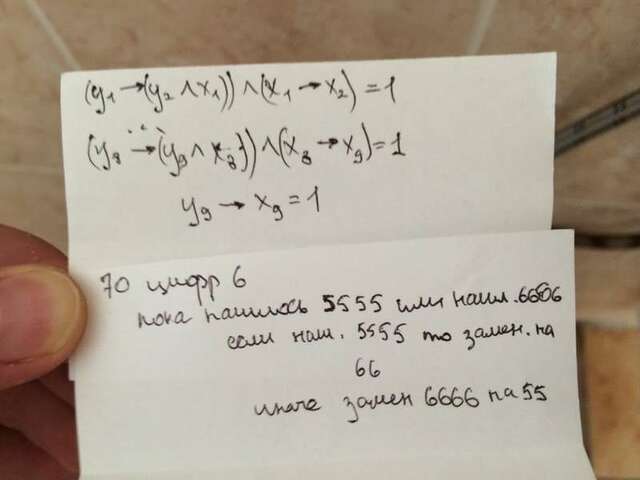 (y₁→(y₂∧x₁))∧(x₁→x₂)=1
...
(y₈→(y₉∧x₈))∧(x₈→x₉)=1
y₉→x₉=1
70 цифр 6
пока нашлось 5555 или нашл. 6666
если наш. 5555 то замен. на
66
иначе замен 6666 на 55